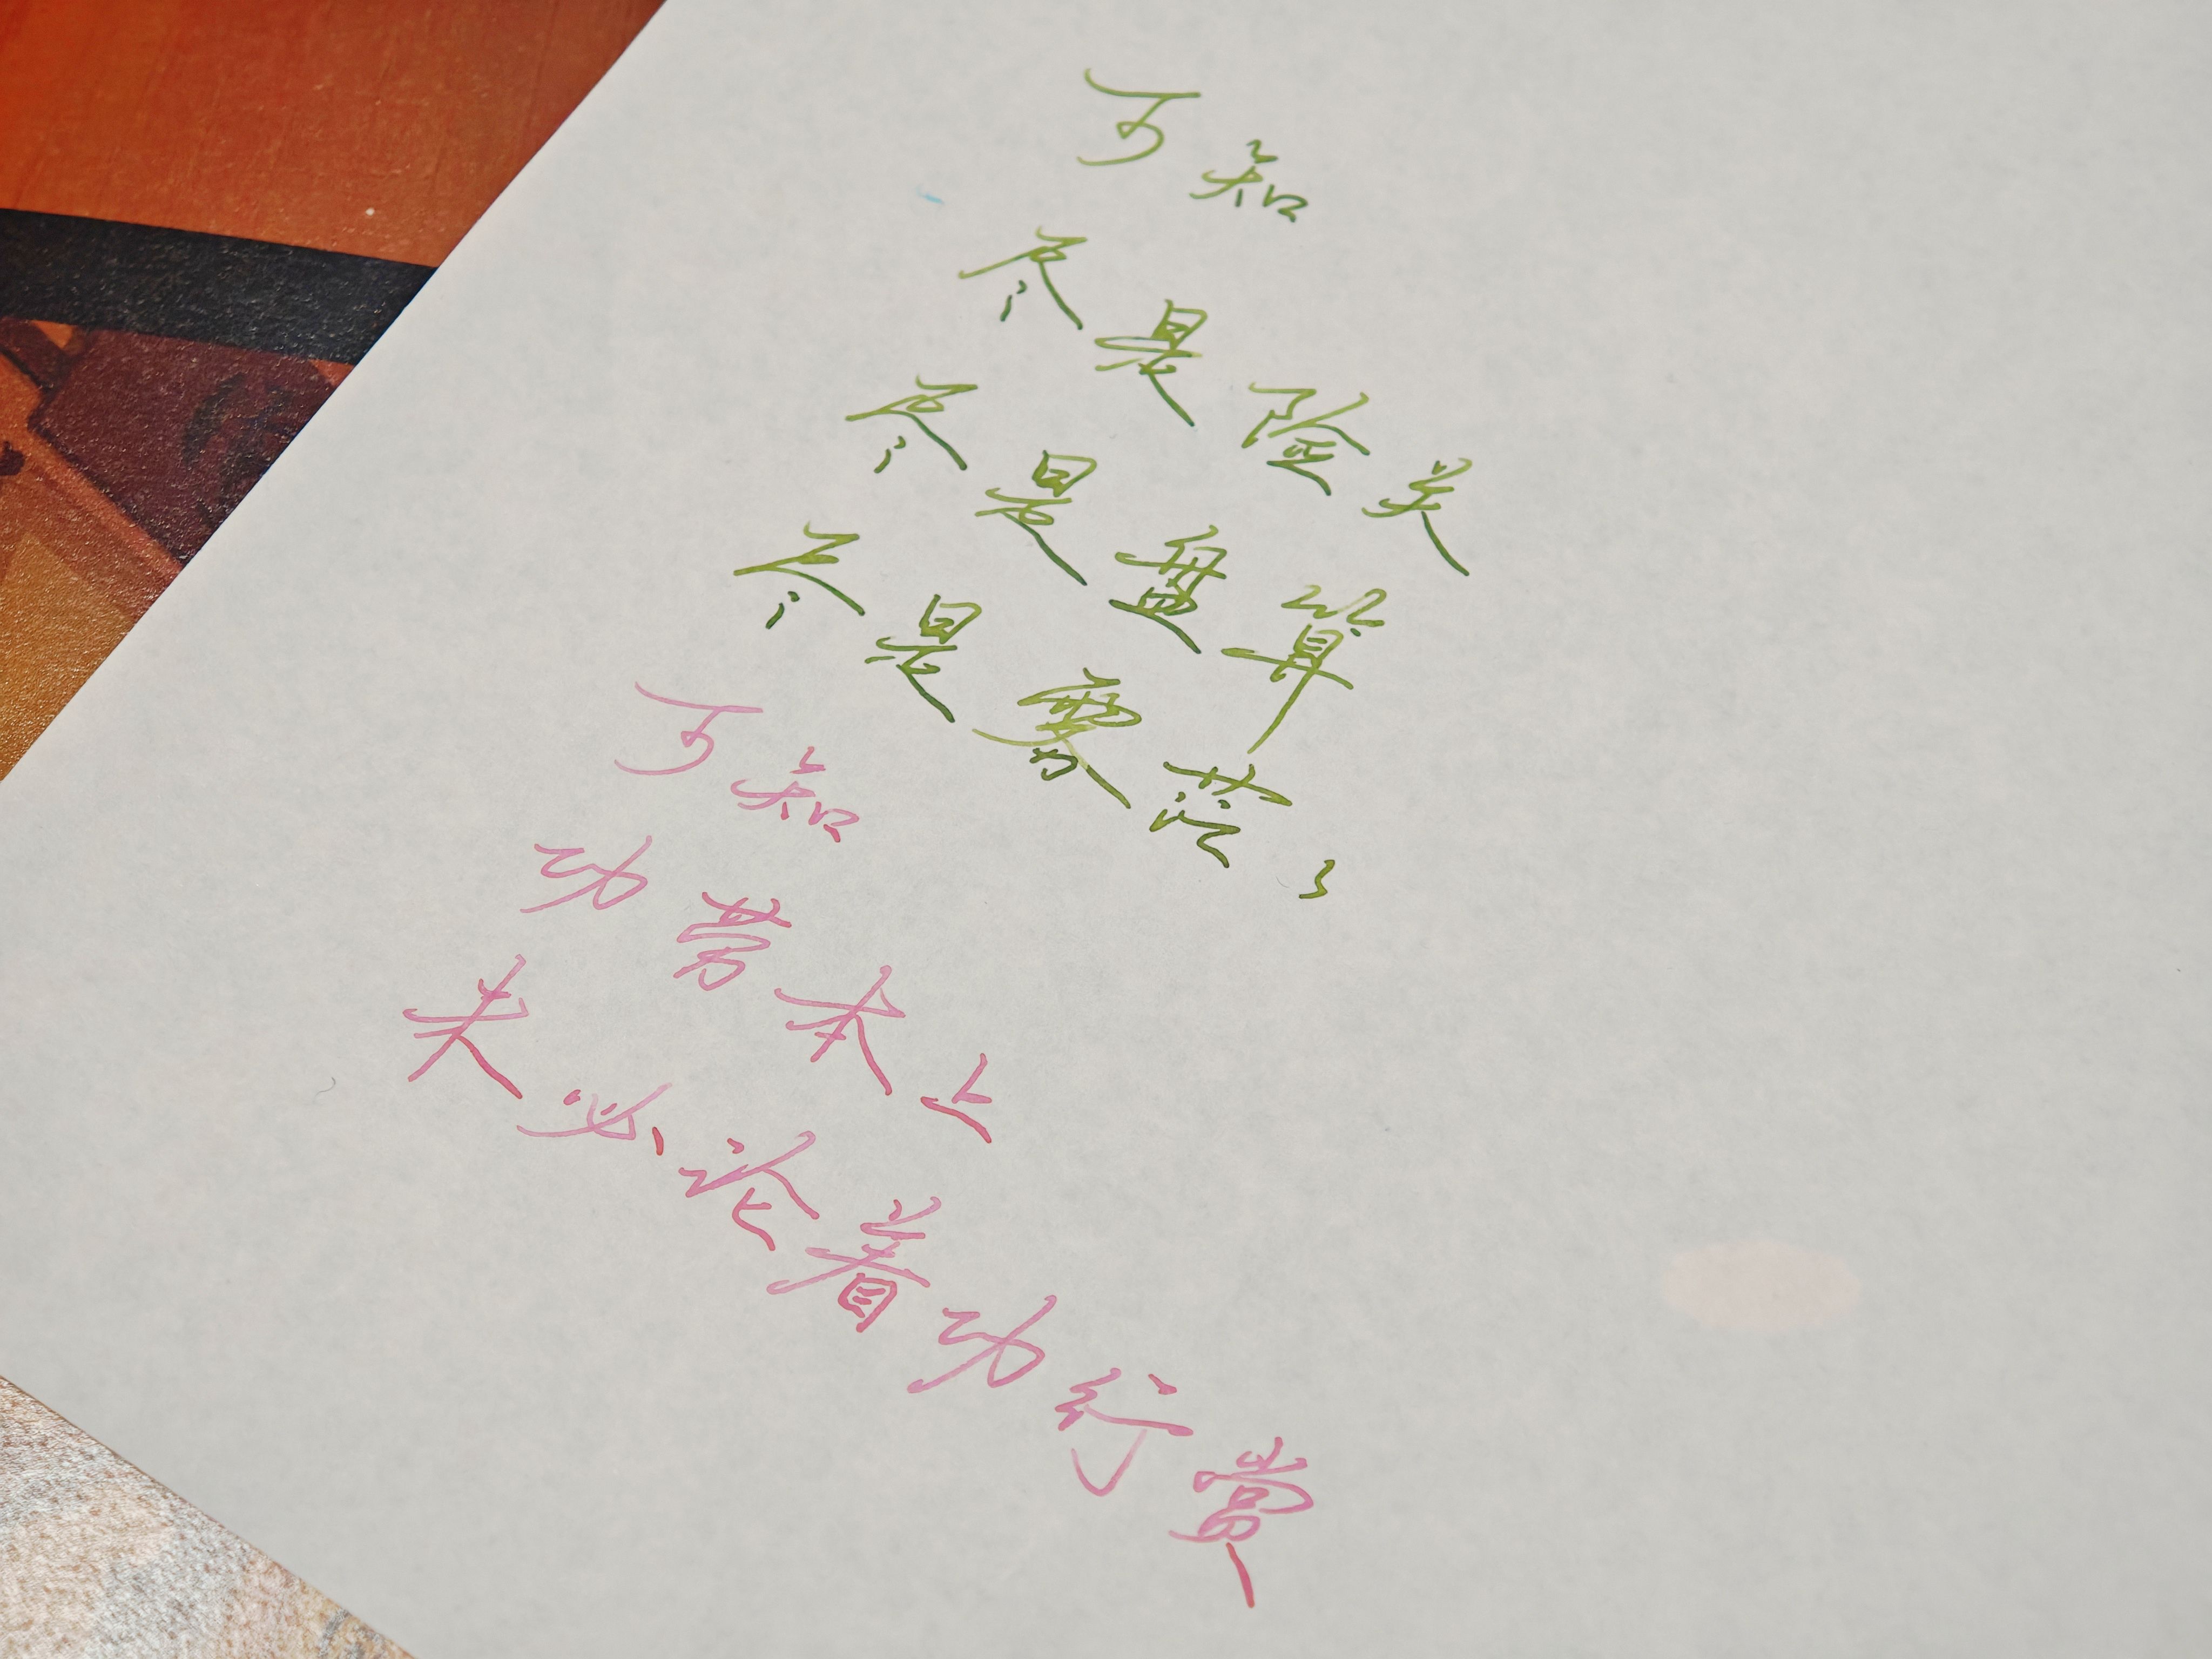 可知
尽是险关
尽是盘算
尽是雾茫々
可知
功劳本上
未必论着功行赏